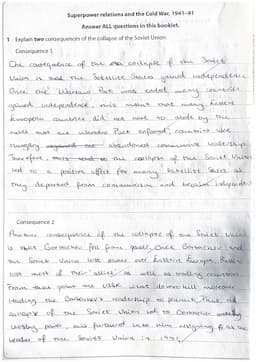 Superpower relations and the Cold War, 1941–91
Answer ALL questions in this booklet.
1 Explain two consequences of the collapse of the Soviet Union.
Consequence 1
One consequence of the collapse of the Soviet
Union is that the Satellite States gained independence
Once the Warsaw Pact was ended many countries
gained independence, this meant that many Eastern
European countries did not have to abide by the
rules that the Warsaw Pact enforced, countries like
Hungary abandoned communist leadership.
Therefore, the collapse of the Soviet Union
led to a positive effect for many Satellite States as
they departed from communism and became independent
Consequence 2
Another consequence of the collapse of the Soviet Union
is that Gorbachev fell from power, Once Gorbachev and
the Soviet Union lost power over Eastern Europe, Russia
lost most of their allies as well as trading countries.
From that point the USSR went downhill moreover
leading the Gorbachev's leadership to
collapse of the Soviet Union led to Gorbachev
him resigning as the
leader of the Soviet Union in 1991.